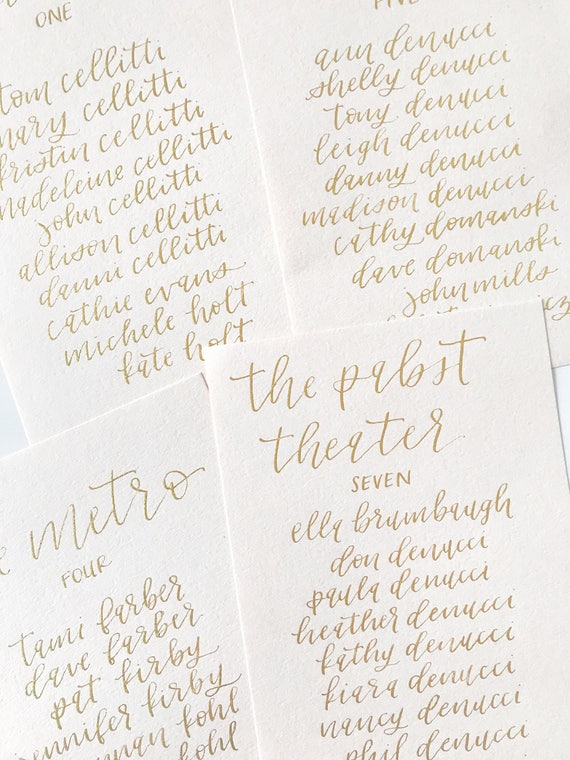 ONE
tom cellitti
mary cellitti
kristin cellitti
madeleine cellitti
john cellitti
allison cellitti
danni cellitti
cathie evans
michele holt
kate holt
FIVE
ann denucci
shelly denucci
tony denucci
leigh denucci
danny denucci
madison denucci
cathy domanski
dave domanski
john mills
metro
FOUR
tami farber
dave farber
pat kirby
jennifer kirby
kohl
kohl
the pabst
theater
SEVEN
ella brumbaugh
don denucci
paula denucci
heather denucci
kathy denucci
kiara denucci
nancy denucci
phil denucci